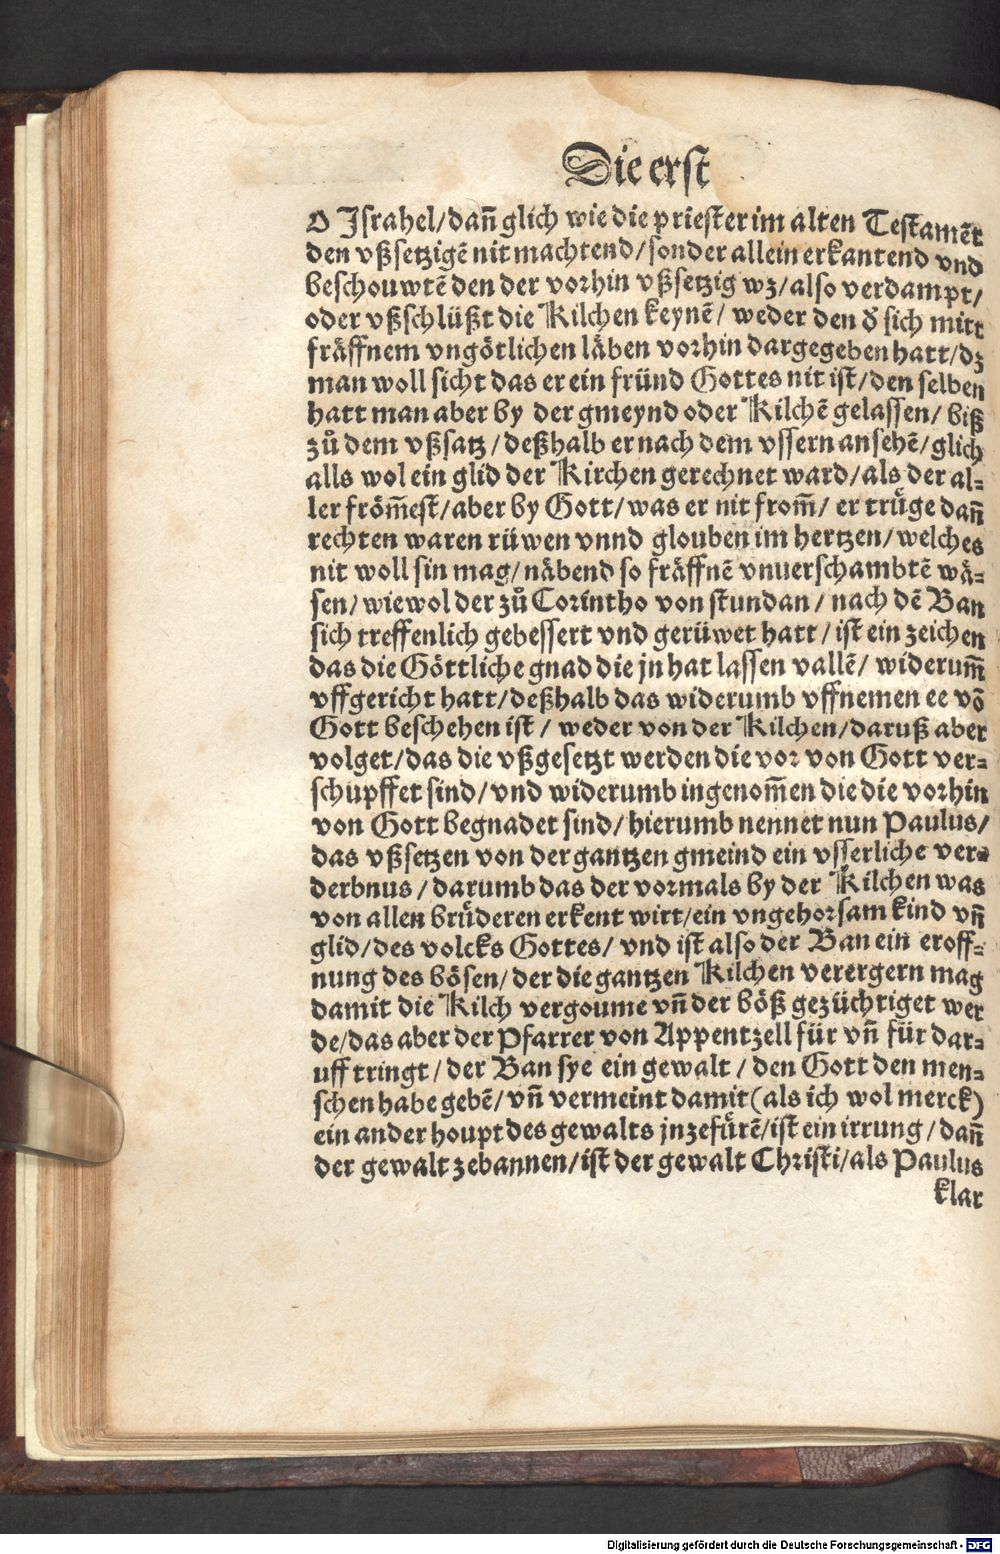 Die erst
O Israhel/dañ glich wie die priester im alten Testamēt
den vßsetzigē nit machtend/sonder allein erkantend vnd
beschouwtē den der vorhin vßsetzig wz/also verdampt/
oder vßschlüßt die Kilchen keynē/ weder den d̄ sich mitt
fräffnem vngötlichen läben vorhin dargegeben hatt/dz
man woll sicht das er ein fründ Gottes nit ist/den selben
hatt man aber by der gmeynd oder Kilchē gelassen/ biß
zů dem vßsatz/deßhalb er nach dem vssern ansehē/glich
alls wol ein glid der Kirchen gerechnet ward/als der al-
ler fröm̄est/aber by Gott/was er nit from̄/ er trüge dañ
rechten waren rüwen vnnd glouben im hertzen/welches
nit woll sin mag/näbend so fräffnē vnuerschambtē wä-
sen/wiewol der zů Corintho von stundan/ nach dē Ban
sich treffenlich gebessert vnd gerüwet hatt/ist ein zeichen
das die Göttliche gnad die jn hat lassen vallē/ widerum̄
vffgericht hatt/deßhalb das widerumb vffnemen ee vō
Gott beschehen ist/ weder von der Kilchen/daruß aber
volget/das die vßgesetzt werden die vor von Gott ver-
schupffet sind/vnd widerumb ingenom̄en die die vorhin
von Gott begnadet sind/hierumb nennet nun Paulus/
das vßsetzen von der gantzen gmeind ein vsserliche ver-
derbnus/darumb das der vormals by der Kilchen was
von allen brüderen erkent wirt/ein vngehorsam kind vñ
glid/des volcks Gottes/ vnd ist also der Ban ein eroff-
nung des bösen/der die gantzen Kilchen verergern mag
damit die Kilch vergoume vñ der böß gezüchtiget wer
de/das aber der Pfarrer von Appentzell für vñ für dar-
uff tringt/der Ban sye ein gewalt/den Gott den men-
schen habe gebē/vñ vermeint damit(als ich wol merck)
ein ander houpt des gewalts jnzefürē/ist ein irrung/dañ
der gewalt zebannen/ist der gewalt Christi/als Paulus
klar
Digitalisierung gefördert durch die Deutsche Forschungsgemeinschaft - DFG